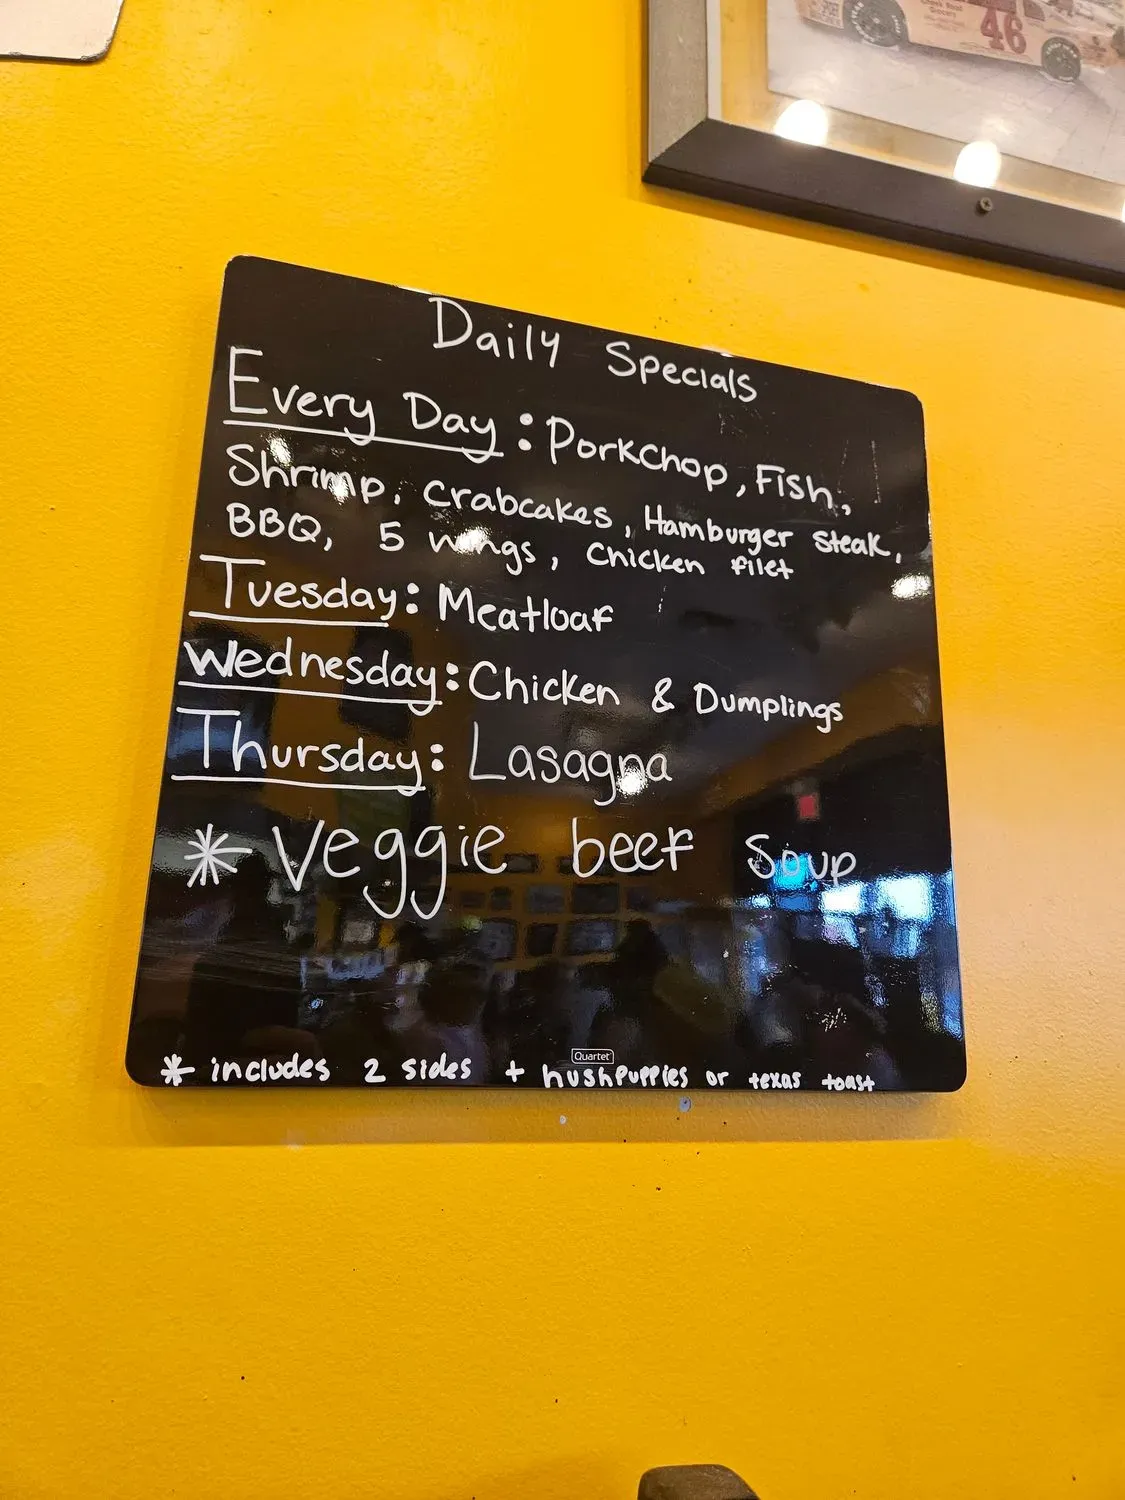 46
Daily Specials
Every Day: Porkchop, Fish,
Shrimp, Crabcakes, Hamburger Steak,
BBQ, 5 wings, Chicken filet
Tuesday: Meatloaf
Wednesday: Chicken & Dumplings
Thursday: Lasagna
* Veggie beef Soup
Quartet
* includes 2 sides + hushpuppies or texas toast